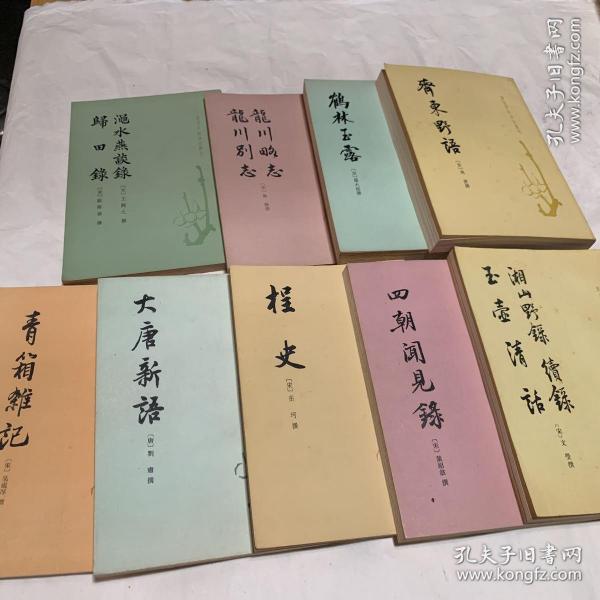 澠水燕談錄
歸田錄
〔宋〕王闢之 撰
〔宋〕歐陽修 撰
龍川略志
龍川別志
〔宋〕蘇轍 撰
鶴林玉露
〔宋〕羅大經 撰
齊東野語
〔宋〕周密 撰
青箱雜記
〔宋〕吳處厚 撰
大唐新語
〔唐〕劉肅 撰
桯史
〔宋〕岳珂 撰
四朝聞見錄
〔宋〕葉紹翁 撰
湘山野錄 續錄
玉壺清話
〔宋〕文瑩 撰
孔夫子旧书网
www.kongfz.com
孔夫子旧书网
www.kongfz.com